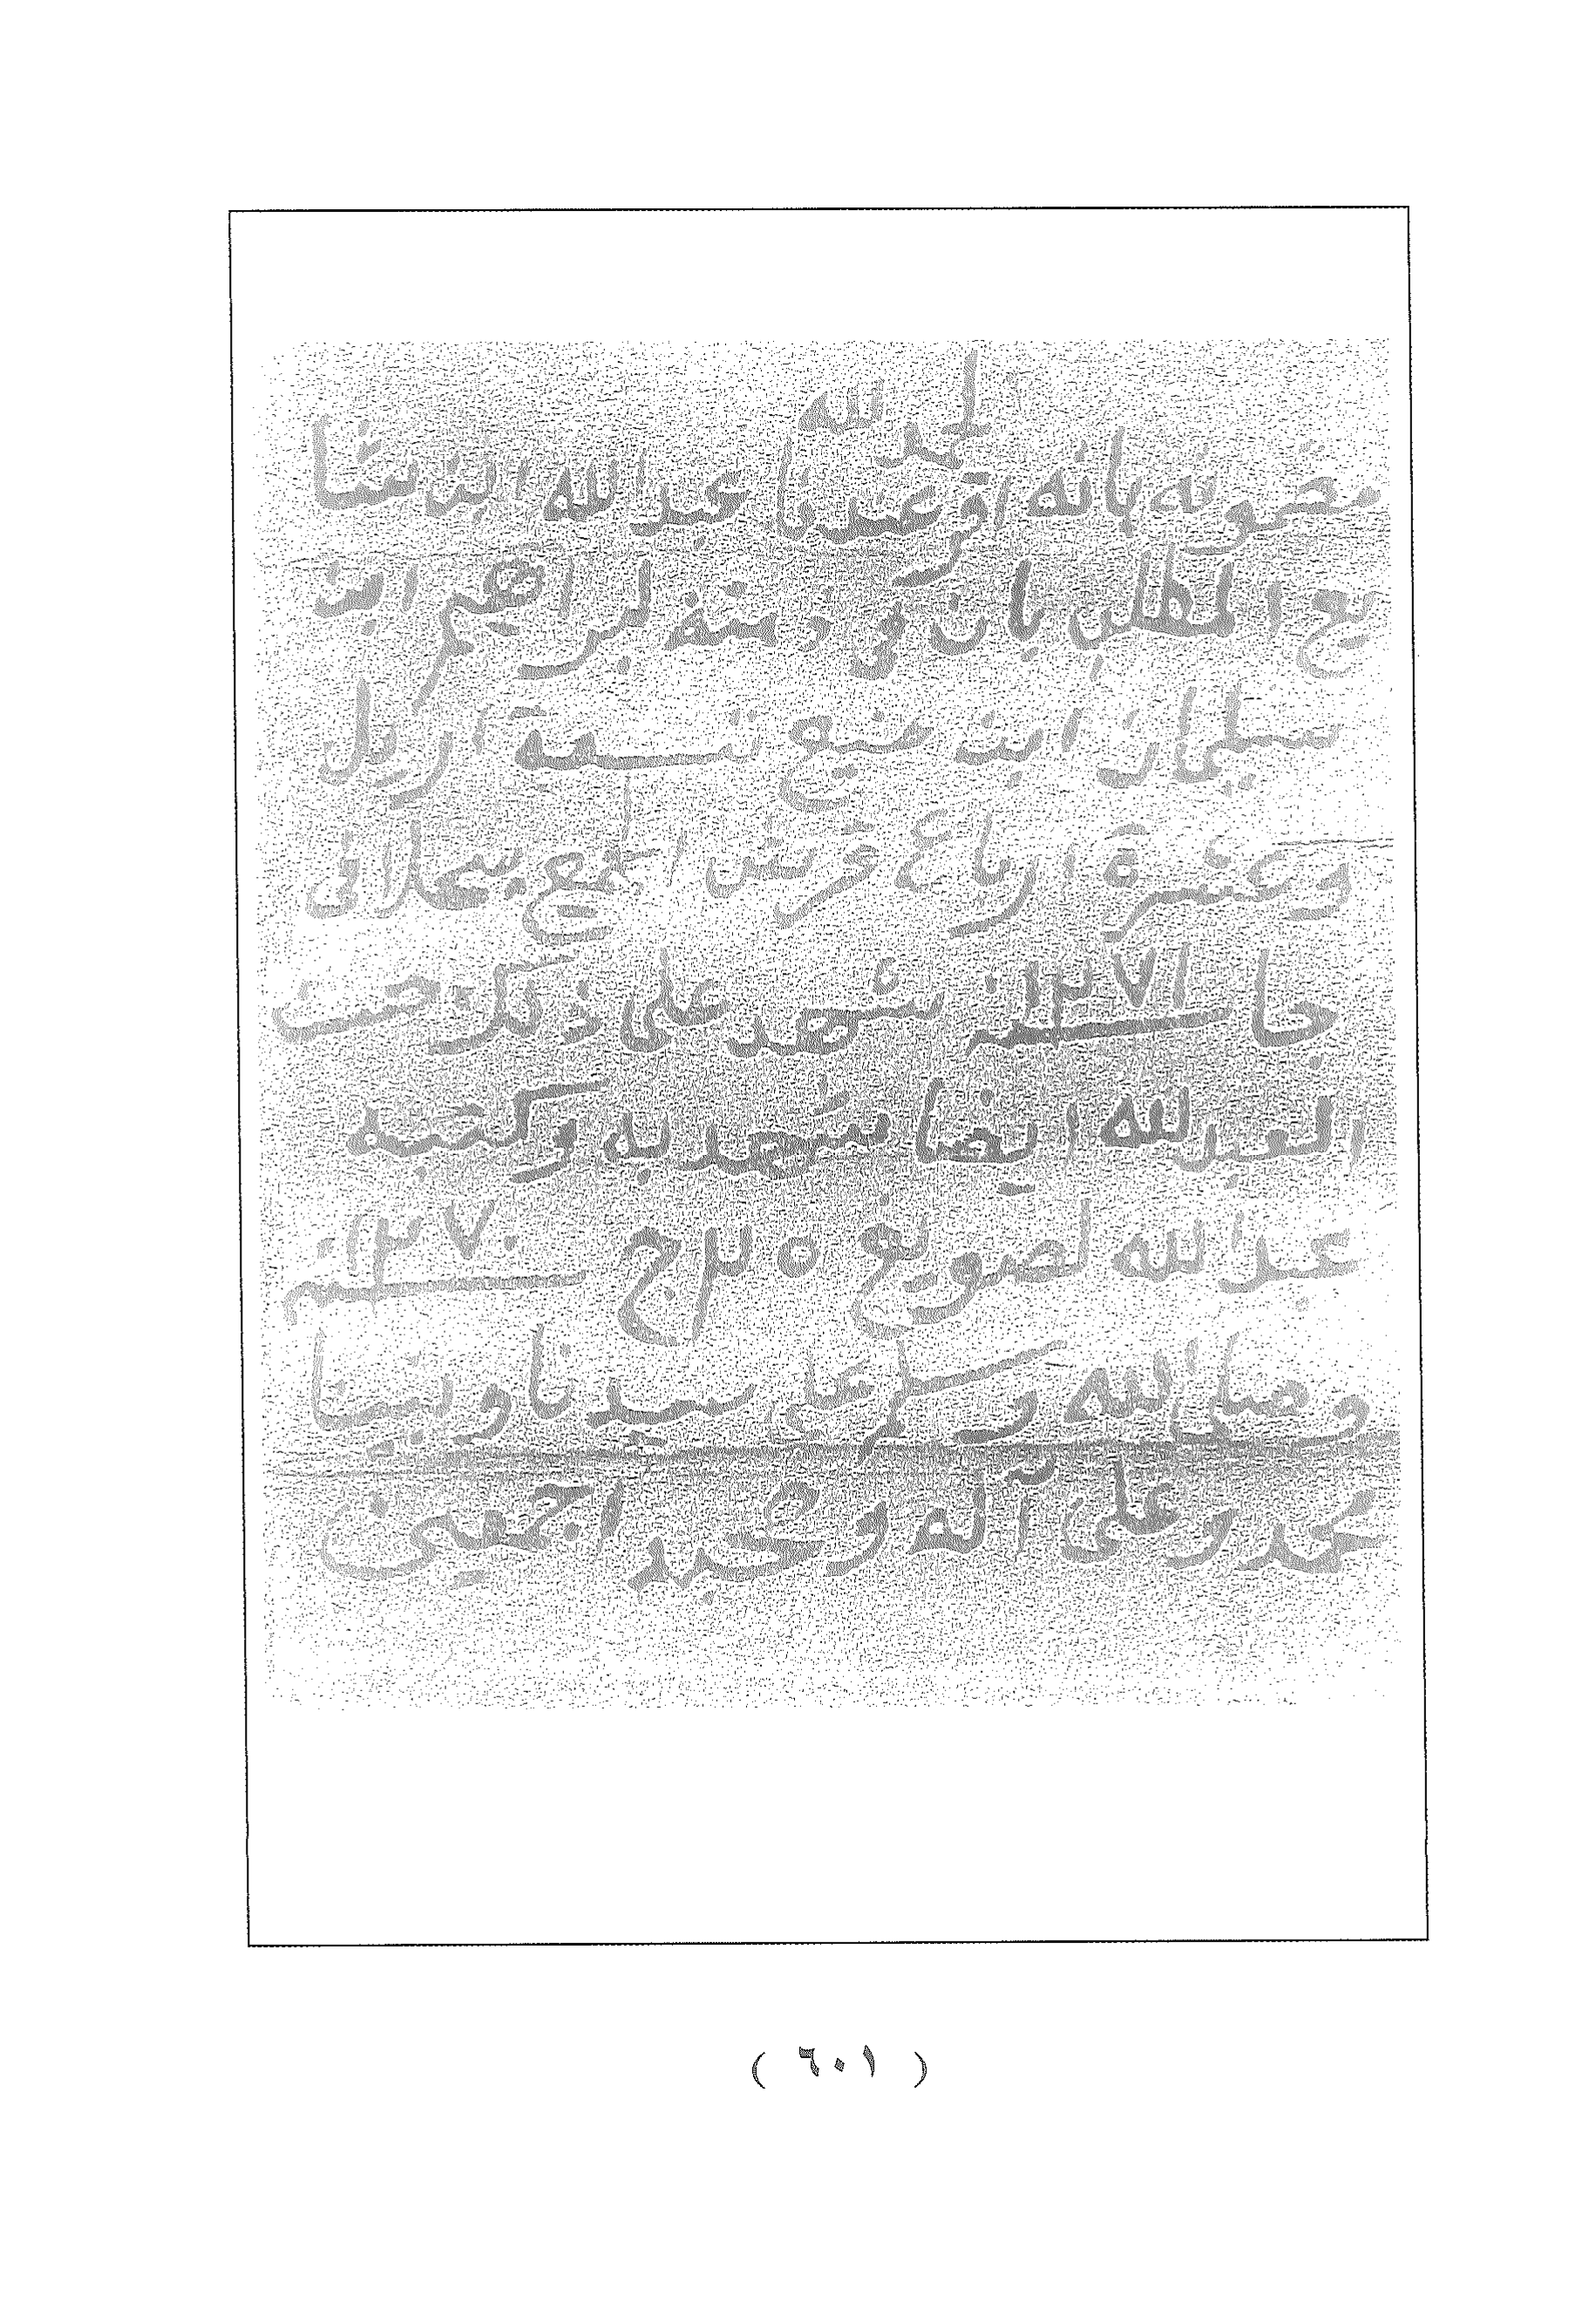 الحمد لله
مضمونه بانه اقر عندنا عبدالله ابن شا
يع المطلب بان في ذمته لبراهيم ابن
سليمان ابن منيع تسعة اريل
وعشرة ارباع قرش اجمع يحلا في
جا سنة ١٢٧١ شهد على ذلك
العبدلله ايضا شهد به وكتبه
عبدالله لصويع ٢٥ ج سنة ١٢٧٠
وصلى الله وسلم على سيدنا ونبينا
محمد وعلى آله وصحبه اجمعين
( ٦٠١ )